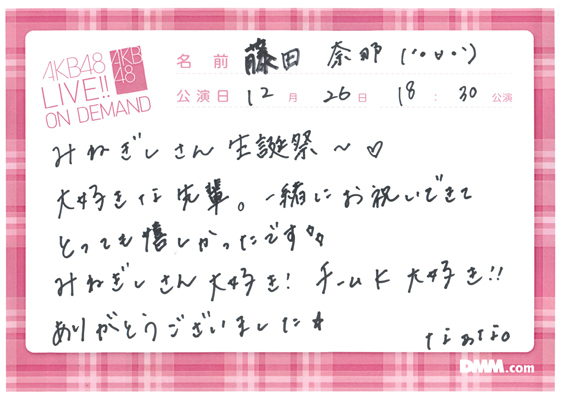 AKB48
LIVE!!
ON DEMAND
AKB
48
名前 藤田 奈那 (''∪'')
公演日 12月 26日 18:30 公演
みねぎしさん 生誕祭~♡
大好きな先輩。一緒にお祝いできて
とっても嬉しかったです
みねぎしさん大好き! チームK 大好き!!
ありがとうございました
なぁな。
DMM.com